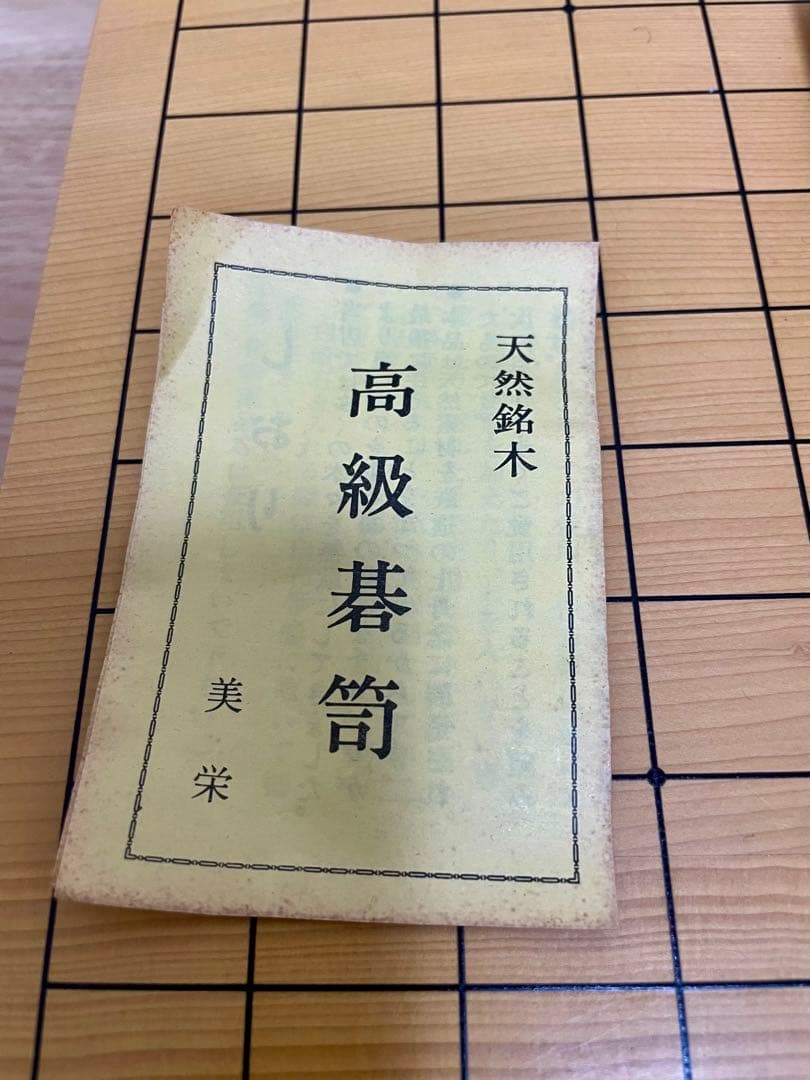 天然銘木
高級碁笥
美栄